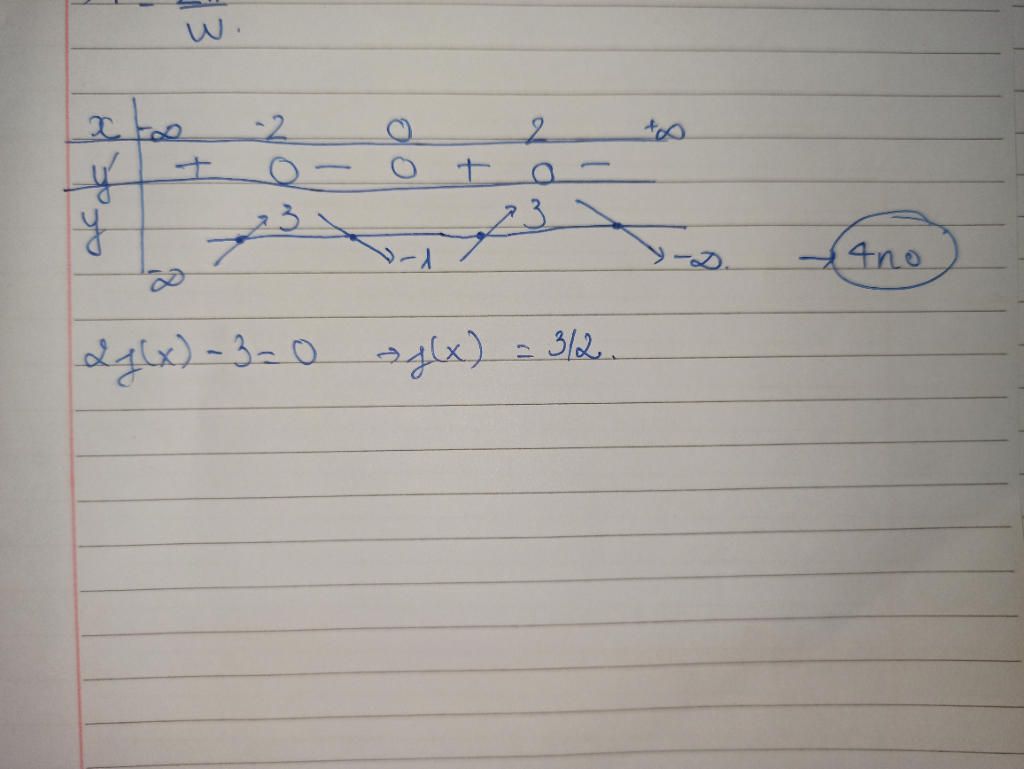 W.
x -∞ -2 0 2 +∞
y' + 0 - 0 + 0 -
y -∞ 3 -1 3 -∞. → 4no
2f(x) - 3 = 0 → f(x) = 3/2.